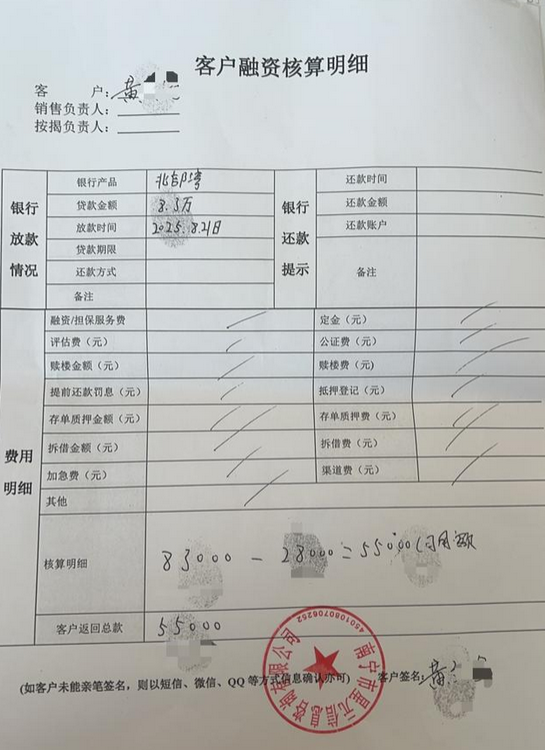 客户融资核算明细
客 户：黄
销售负责人：
按揭负责人：
银行放款情况
银行产品 北部湾
贷款金额 8.3万
放款时间 2025.8.21日
贷款期限
还款方式
备注
银行还款提示
还款时间
还款金额
还款账户
备注
费用明细
融资/担保服务费 定金（元）
评估费（元） 公证费（元）
赎楼金额（元） 赎楼费（元）
提前还款罚息（元） 抵押登记（元）
存单质押金额（元） 存单质押费（元）
拆借金额（元） 拆借费（元）
加急费（元） 渠道费（元）
其他
核算明细 83000 - 28000 = 55000（可用额
客户返回总款 55000
(如客户未能亲笔签名，则以短信、微信、QQ 等方式信息确认亦可) 客户签名：黄
南宁市里元信息咨询有限公司
4501080706252